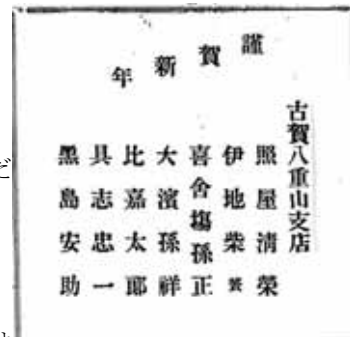 謹賀新年
古賀八重山支店
照屋清榮
伊地柴
喜舍塲孫正
大濱孫祥
比嘉太郎
具志忠一
黒島安助
だ